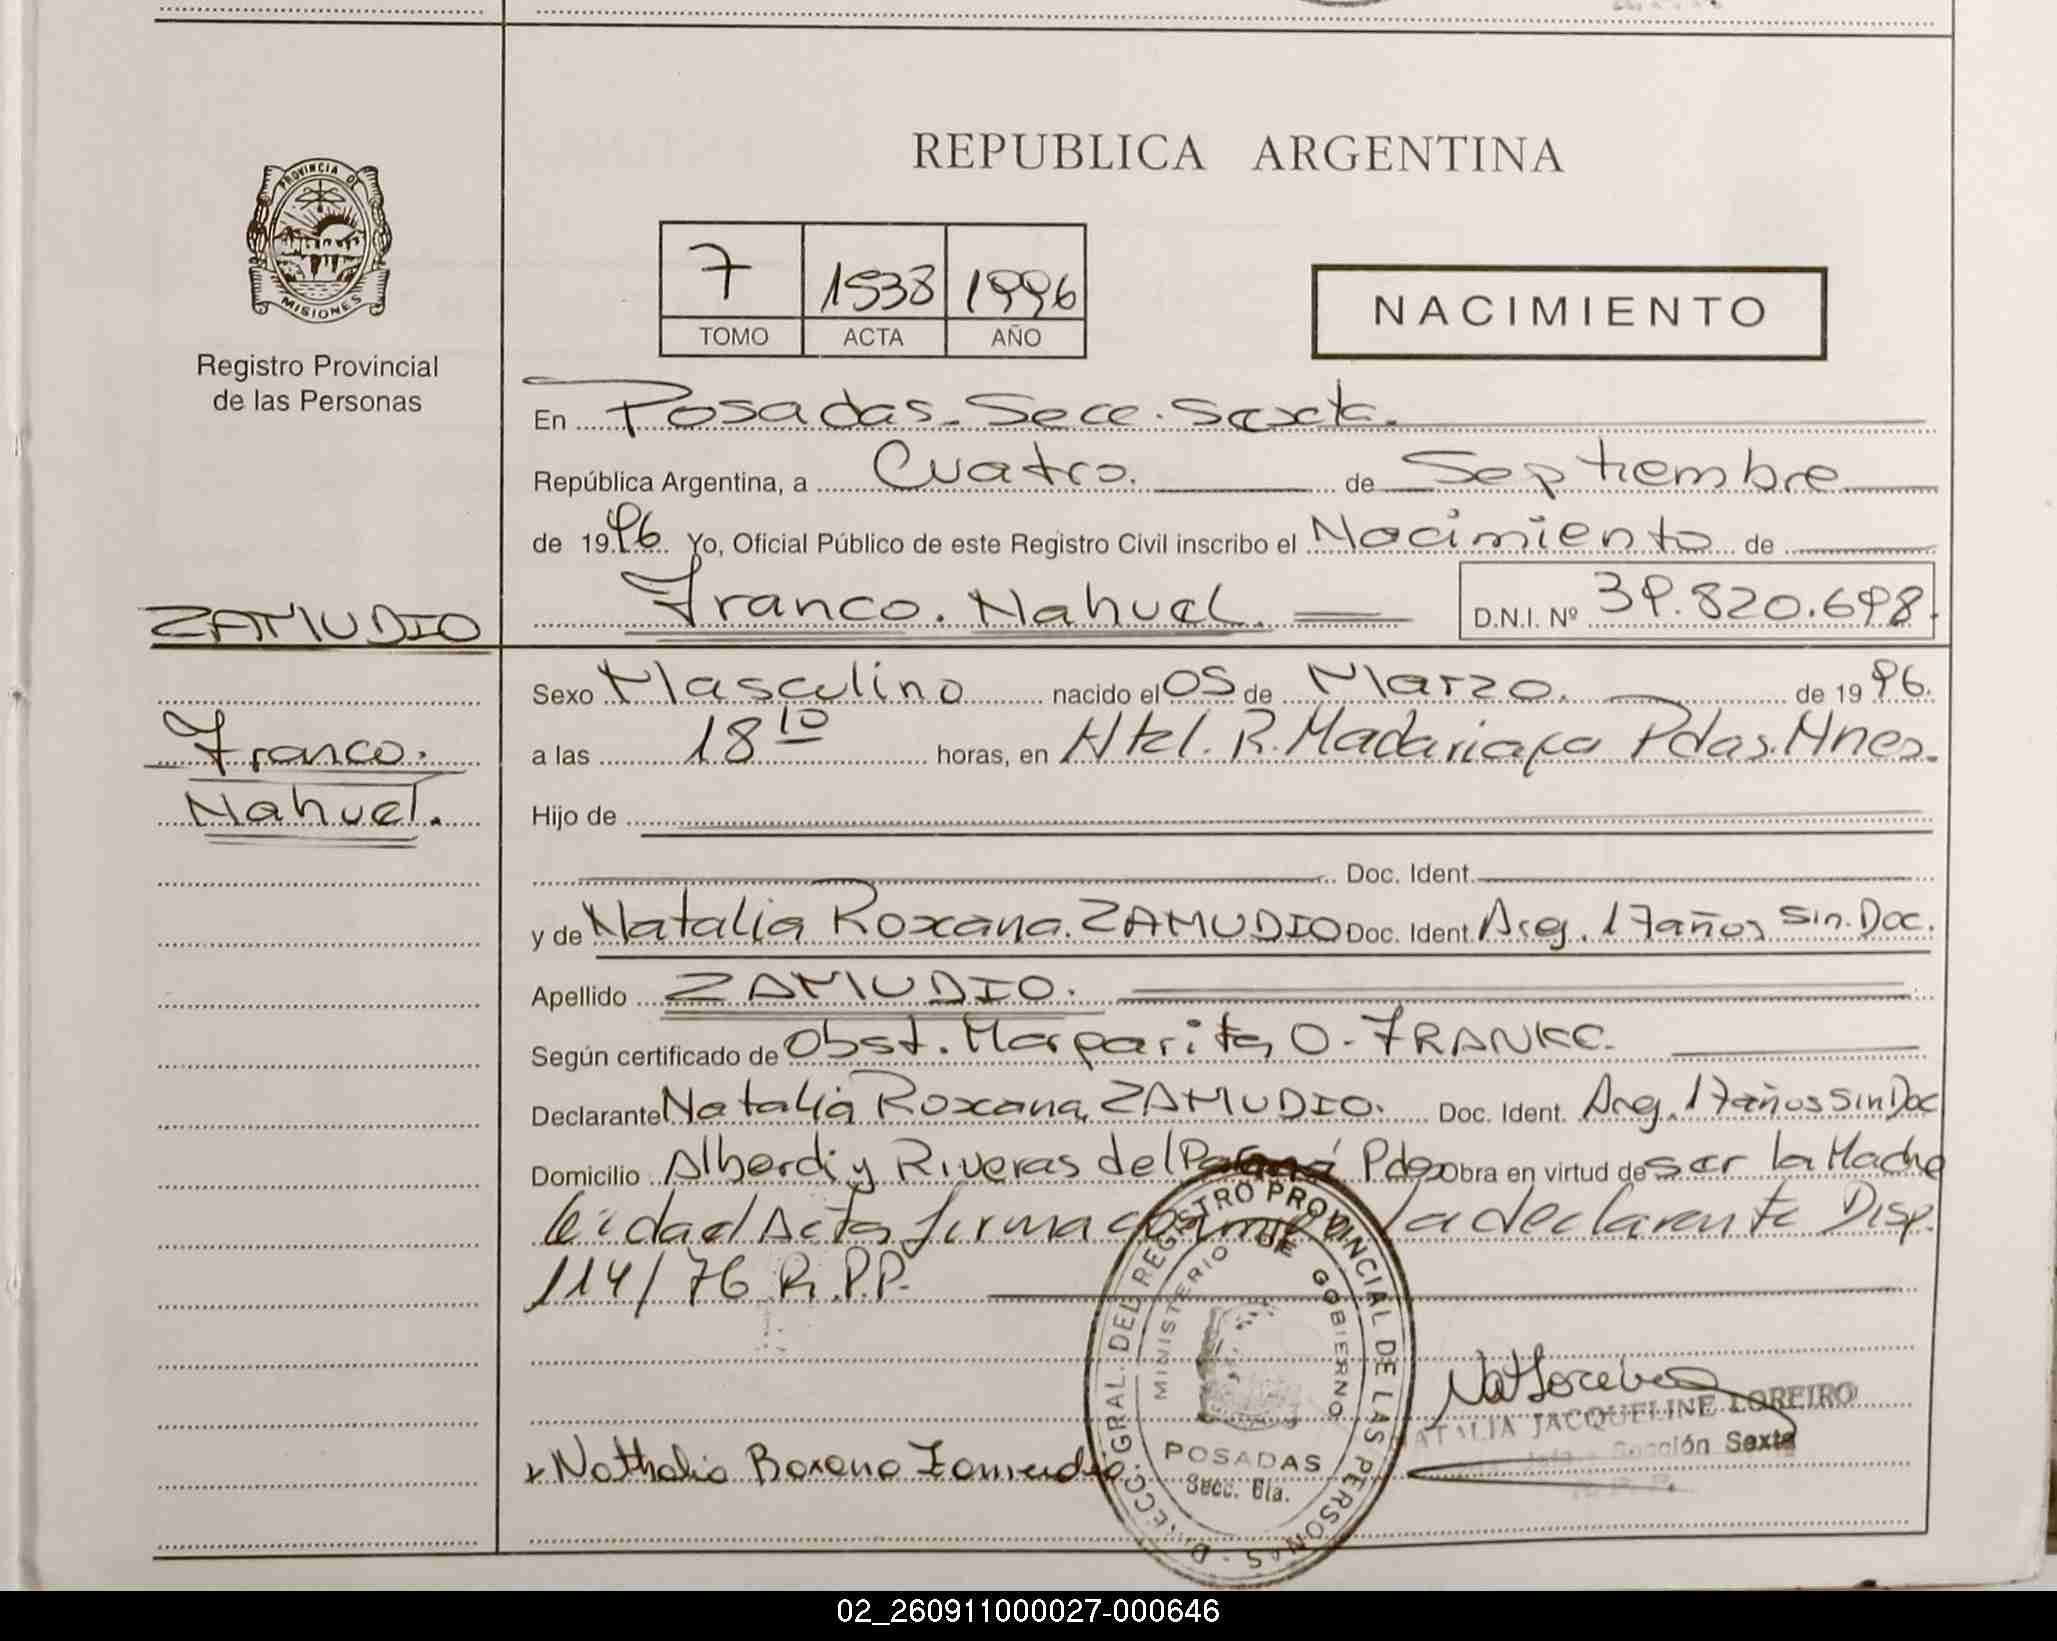 REPUBLICA ARGENTINA
PROVINCIA DE
MISIONES
Registro Provincial
de las Personas
7 1538 1996
TOMO ACTA AÑO
NACIMIENTO
En Posadas. Secc. Sexta.
República Argentina, a Cuatro. de Septiembre
de 1996 Yo, Oficial Público de este Registro Civil inscribo el Nacimiento de
Franco. Nahuel. D.N.I. Nº 39.820.698.
ZAMUDIO
Franco.
Nahuel.
Sexo Masculino nacido el 05 de Marzo. de 1996.
a las 18 10 horas, en Htal. R. Madariaga Pdas. Mnes.
Hijo de
Doc. Ident.
y de Natalia Roxana. ZAMUDIO Doc. Ident. Arg. 17 años Sin. Doc.
Apellido ZAMUDIO.
Según certificado de Obst. Margarita O. FRANKE.
Declarante Natalia Roxana, ZAMUDIO. Doc. Ident. Arg. 17 años Sin Doc
Domicilio Alberdi y Riveras del Paraná Pdas Obra en virtud de ser la Madre
leida el Acta firma la declarante Disp.
114/76 R.P.P.
Nathalia Roxana Zamudio
DIRECC. GRAL. DEL REGISTRO PROVINCIAL DE LAS PERSONAS
MINISTERIO DE GOBIERNO
POSADAS
Secc. 6ta.
NATALIA JACQUELINE LOREIRO
Sección Sexta
02_260911000027-000646